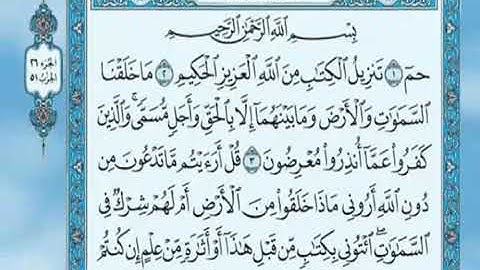 الجزء ٢٦
الحزب ٥١
بِسْمِ اللَّهِ الرَّحْمَٰنِ الرَّحِيمِ
حمٓ ١ تَنزِيلُ الْكِتَٰبِ مِنَ اللَّهِ الْعَزِيزِ الْحَكِيمِ ٢ مَا خَلَقْنَا
السَّمَٰوَٰتِ وَالْأَرْضَ وَمَا بَيْنَهُمَآ إِلَّا بِالْحَقِّ وَأَجَلٍ مُّسَمًّى ۚ وَالَّذِينَ
كَفَرُوا۟ عَمَّآ أُنذِرُوا۟ مُعْرِضُونَ ٣ قُلْ أَرَءَيْتُم مَّا تَدْعُونَ مِن
دُونِ اللَّهِ أَرُونِى مَاذَا خَلَقُوا۟ مِنَ الْأَرْضِ أَمْ لَهُمْ شِرْكٌ فِى
السَّمَٰوَٰتِ ۖ ائْتُونِى بِكِتَٰبٍ مِّن قَبْلِ هَٰذَآ أَوْ أَثَٰرَةٍ مِّنْ عِلْمٍ إِن كُنتُمْ